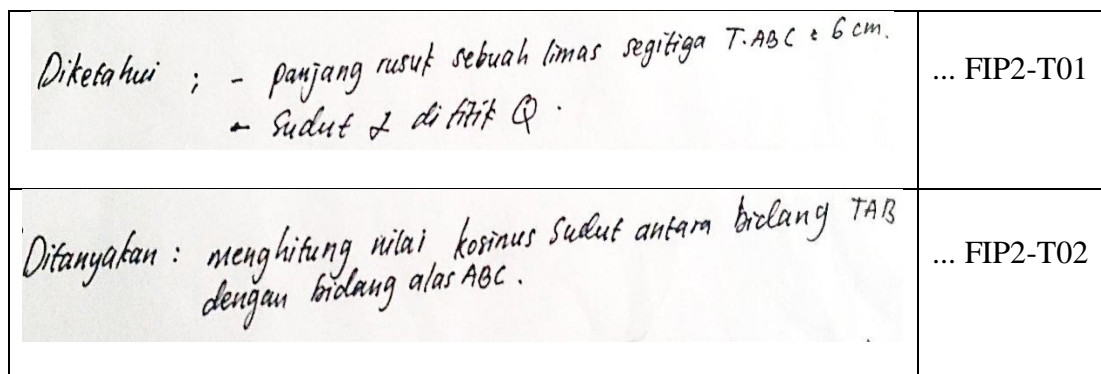 Diketahui ; - panjang rusuk sebuah limas segitiga T.ABC = 6 cm.
- Sudut α di titik Q.
... FIP2-T01
Ditanyakan : menghitung nilai kosinus Sudut antara bidang TAB
dengan bidang alas ABC.
... FIP2-T02